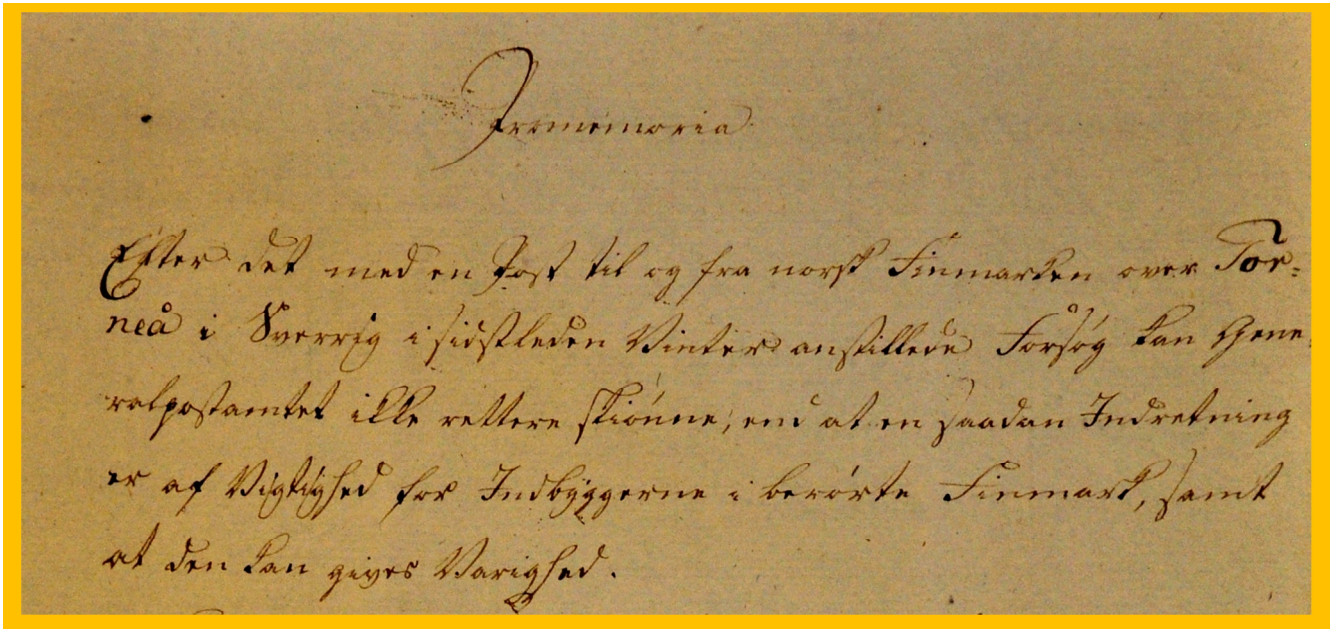 Promemoria
Efter det med en Post til og fra norsk Finmarken over Tor=
neå i Sverrig i sidstleden Vinter anstillede Forsøg kan Gene=
ralpostamtet ikke rettere skiønne, end at en saadan Indretning
er af Vigtighed for Indbyggerne i berørte Finmark, samt
at den kan gives Varighed.